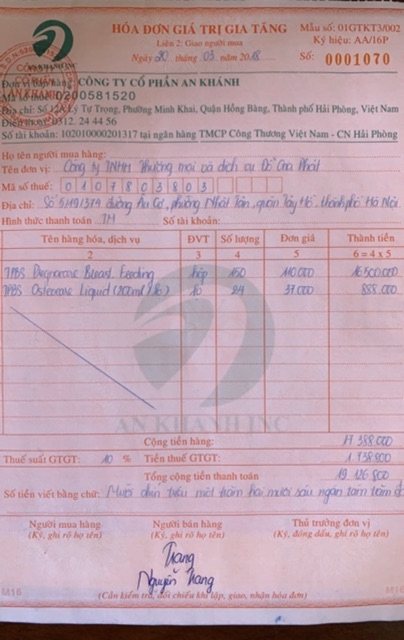 HÓA ĐƠN GIÁ TRỊ GIA TĂNG
Mẫu số: 01GTKT3/002
Liên 2: Giao người mua
Ký hiệu: AA/16P
Ngày 20 tháng 03 năm 2018
Số: 0001070
Đơn vị bán hàng: CÔNG TY CỔ PHẦN AN KHÁNH
Mã số thuế: 0200581520
Địa chỉ: Số 12A Lý Tự Trọng, Phường Minh Khai, Quận Hồng Bàng, Thành phố Hải Phòng, Việt Nam
Điện thoại: 0312. 24 44 56
Số tài khoản: 1020100000201317 tại ngân hàng TMCP Công Thương Việt Nam - CN Hải Phòng
Họ tên người mua hàng:
Tên đơn vị: Công ty TNHH Thương mại và dịch vụ Đỗ Gia Phát
Mã số thuế: 0107803803
Địa chỉ: Số 519/379 đường Âu Cơ, phường Nhật Tân, quận Tây Hồ, thành phố Hà Nội
Hình thức thanh toán: TM Số tài khoản:
Tên hàng hóa, dịch vụ ĐVT Số lượng Đơn giá Thành tiền
2 3 4 5 6 = 4 x 5
Breast Feeding hộp 150 110.000 16.500.000
Liquid (200ml/lọ) lọ 24 37.000 888.000
AN KHANH INC
Cộng tiền hàng: 17.388.000
Thuế suất GTGT: 10 % Tiền thuế GTGT: 1.738.800
Tổng cộng tiền thanh toán 19.126.800
Số tiền viết bằng chữ: Mười chín triệu một trăm hai mươi sáu ngàn tám trăm đ
Người mua hàng Người bán hàng Thủ trưởng đơn vị
(Ký, ghi rõ họ tên) (Ký, ghi rõ họ tên) (Ký, đóng dấu, ghi rõ họ tên)
Trang
Nguyễn Trang
M16
(Cần kiểm tra, đối chiếu khi lập, giao, nhận hóa đơn)